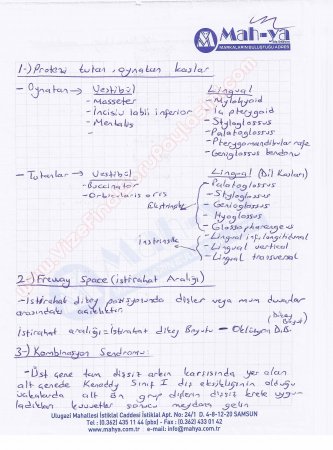 Mah-ya
MARKALARIN BULUŞTUĞU ADRES
1-) Protezi tutan, oynatan kaslar
- Oynatan → Vestibül
- Masseter
- İncisiv labii inferior
- Mentalis
Lingual
- Mylohyoid
- İç pterygoid
- Styloglossus
- Palatoglossus
- Pterygomandibular rafe
- Genioglossus tendonu
- Tutanlar → Vestibül
- Buccinator
- Orbicularis oris
Lingual (Dil Kasları)
Ekstrinsik
- Palatoglossus
- Styloglossus
- Genioglossus
- Hyoglossus
- Glossopharengeus
İntrinsik
- Lingual inf. longitidunal
- Lingual vertical
- Lingual transversal
2-) Freeway Space (İstirahat Aralığı)
- İstirahat dikey pozisyonunda dişler veya mum duvarlar
arasındaki açıklıktır.
İstirahat aralığı = İstirahat dikey Boyutu - Oklüzyon D.B.
(Dikey Boyut)
3-) Kombinasyon Sendromu:
- Üst çene tam dişsiz arkın karşısında yer alan
alt çenede Kennedy Sınıf I diş eksikliğinin olduğu
vakalarda alt ön grup dişlerin dişsiz krete uygu-
ladıkları kuvvetler sonucu meydana gelir.
Ulugazi Mahallesi İstiklal Caddesi İstiklal Apt. No: 24/1 D. 4-8-12-20 SAMSUN
Tel: (0.362) 435 11 44 (pbx) - Fax: (0.362) 433 01 42
www.mahya.com.tr e-mail: info@mahya.com.tr